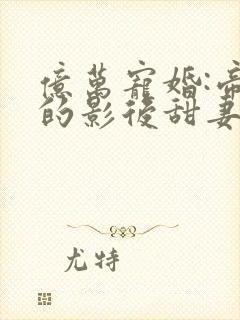 億萬寵婚:帝
的影後甜妻
尤特